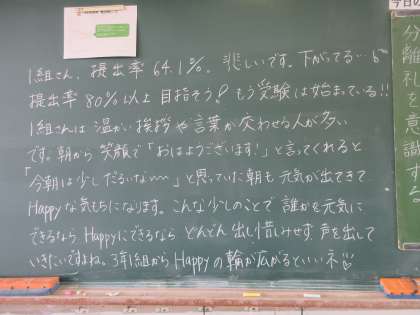 今日の
1組さん、提出率64.1%。悲しいです。下がってる…
提出率80%以上目指そう!もう受験は始まっている!!
1組さんは温かい挨拶や言葉が交わせる人が多い
です。朝から笑顔で「おはようございます!」と言ってくれると
「今朝は少しだるいな〰」と思っていた朝も元気が出てきて
Happyな気もちになります。こんな少しのことで誰かを元気に
できるならHappyにできるならどんどん出し惜しみせず声を出して
いきたいですね。3年1組からHappyの輪が広がるといいネ
分離礼を意識する